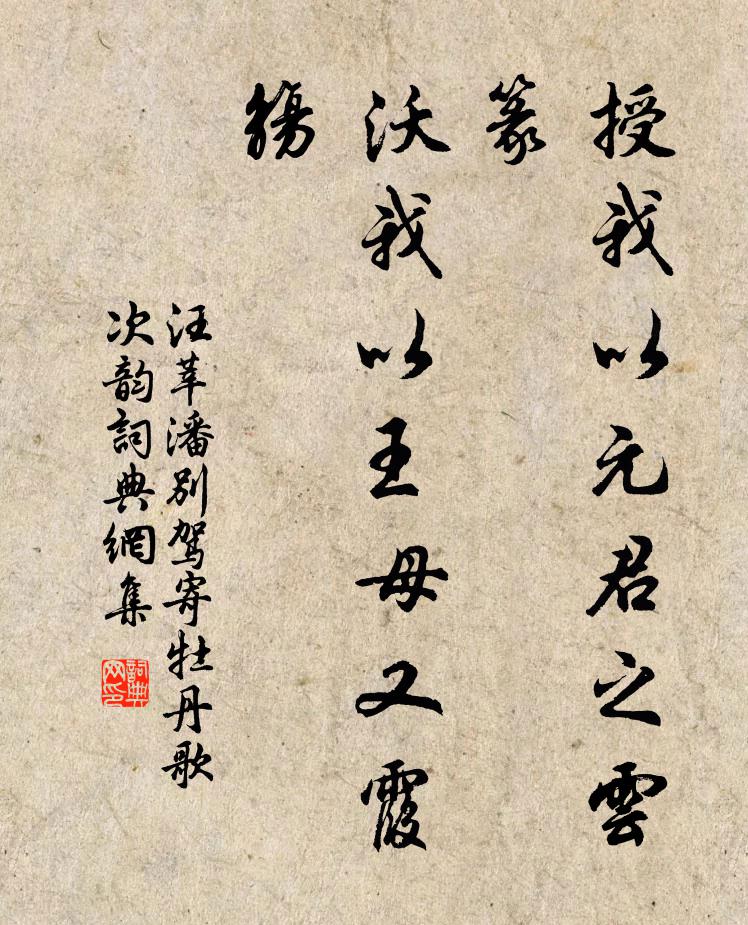 授我以元君之雲
篆
沃我以王母又霞
觴
汪莘潘别駕寄牡丹歌
次韵詞典網集
詞典网印